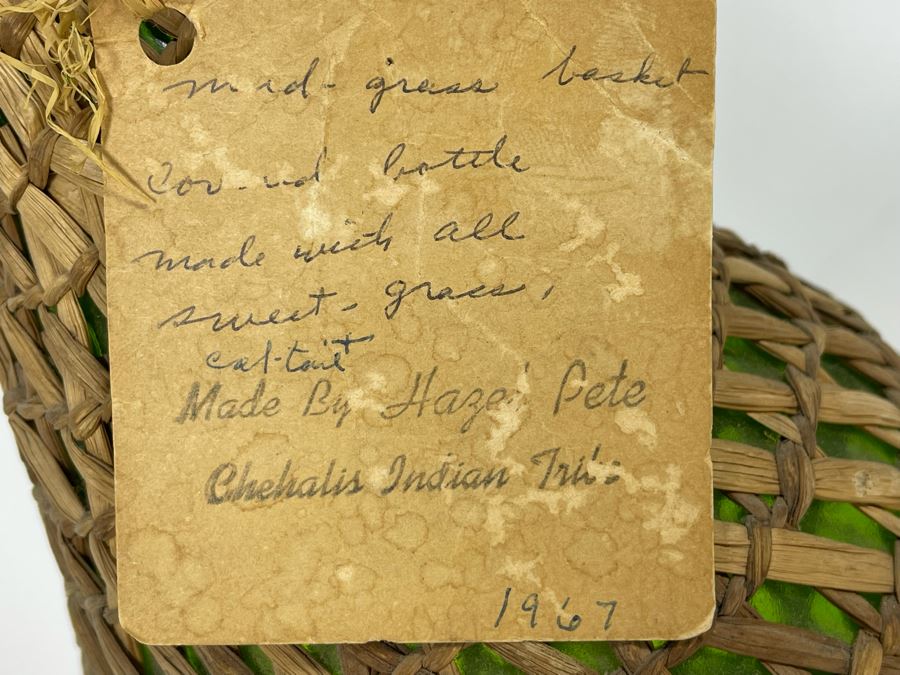 mud-grass basket
bottle
made with all
sweet-grass,
cat-tail +
Made By Hazel Pete
Chehalis Indian Tribe
1967